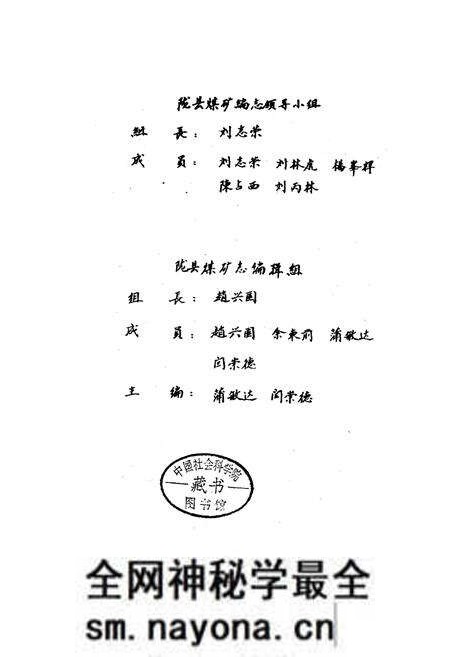 陇县煤矿编志领导小组
组 长： 刘志荣
成 员： 刘志荣 刘林虎 杨举辉
陈占西 刘丙林
陇县煤矿志编辑组
组 长： 赵兴国
成 员： 赵兴国 余东前 蒲敏达
闫崇德
主 编： 蒲敏达 闫崇德
中国社会科学院
藏书
图书馆
全网神秘学最全
sm.nayona.cn